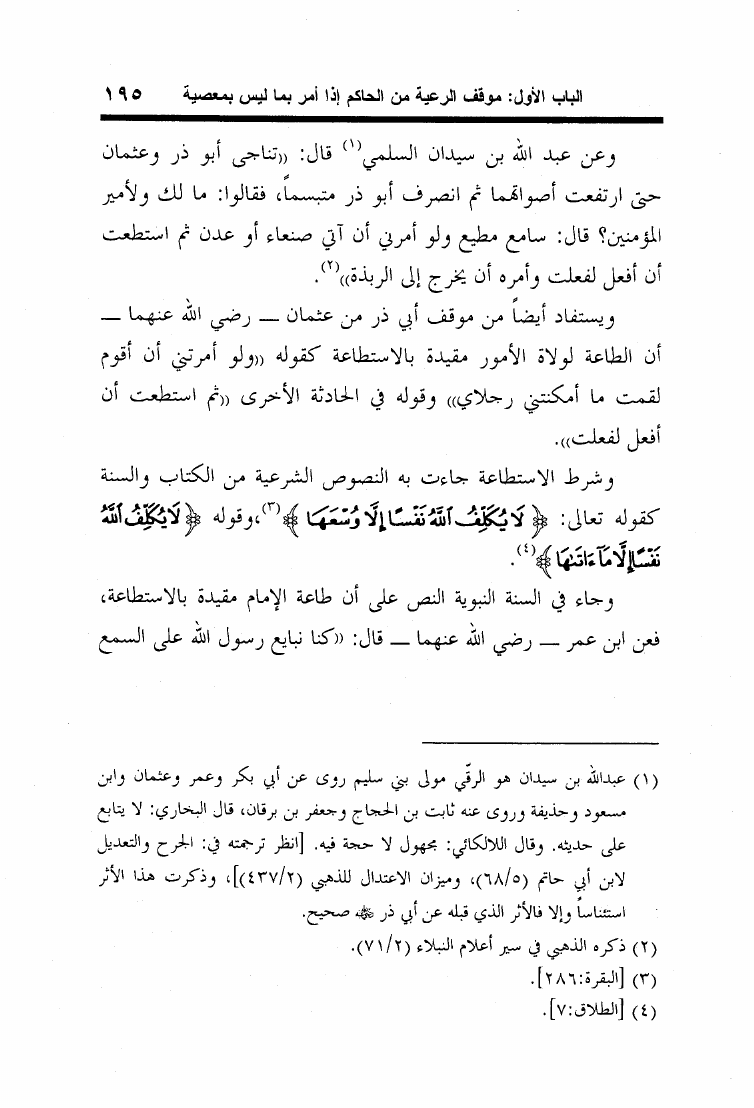 الباب الأول: موقف الرعية من الحاكم إذا أمر بما ليس بمعصية ١٩٥
وعن عبد الله بن سيدان السلمي(١) قال: ((تناجى أبو ذر وعثمان
حتى ارتفعت أصواتهما ثم انصرف أبو ذر متبسماً، فقالوا: ما لك ولأمير
المؤمنين؟ قال: سامع مطيع ولو أمرني أن آتي صنعاء أو عدن ثم استطعت
أن أفعل لفعلت وأمره أن يخرج إلى الربذة))(٢).
ويستفاد أيضاً من موقف أبي ذر من عثمان ــ رضي الله عنهما ــ
أن الطاعة لولاة الأمور مقيدة بالاستطاعة كقوله ((ولو أمرتني أن أقوم
لقمت ما أمكنتني رجلاي)) وقوله في الحادثة الأخرى ((ثم استطعت أن
أفعل لفعلت)).
وشرط الاستطاعة جاءت به النصوص الشرعية من الكتاب والسنة
كقوله تعالى: ﴿لَا يُكَلِّفُ ٱللَّهُ نَفْسًا إِلَّا وُسْعَهَا﴾(٣)،وقوله ﴿لَا يُكَلِّفُ ٱللَّهُ
نَفْسًا إِلَّا مَآ ءَاتَىٰهَا﴾(٤).
وجاء في السنة النبوية النص على أن طاعة الإمام مقيدة بالاستطاعة،
فعن ابن عمر ــ رضي الله عنهما ــ قال: ((كنا نبايع رسول الله على السمع
(١) عبدالله بن سيدان هو الرقّي مولى بني سليم روى عن أبي بكر وعمر وعثمان وابن
مسعود وحذيفة وروى عنه ثابت بن الحجاج وجعفر بن برقان، قال البخاري: لا يتابع
على حديثه. وقال اللالكائي: مجهول لا حجة فيه. [انظر ترجمته في: الجرح والتعديل
لابن أبي حاتم (٦٨/٥)، وميزان الاعتدال للذهبي (٤٣٧/٢)]، وذكرت هذا الأثر
استئناساً وإلا فالأثر الذي قبله عن أبي ذر ﷺ صحيح.
(٢) ذكره الذهبي في سير أعلام النبلاء (٧١/٢).
(٣) [البقرة:٢٨٦].
(٤) [الطلاق:٧].